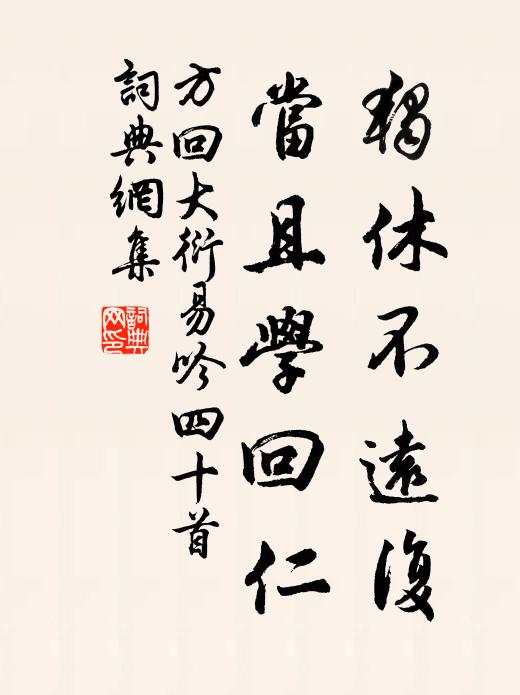 獨休不遠復
當且學回仁
方回大衍易吟四十首
詞典網集
詞典網印